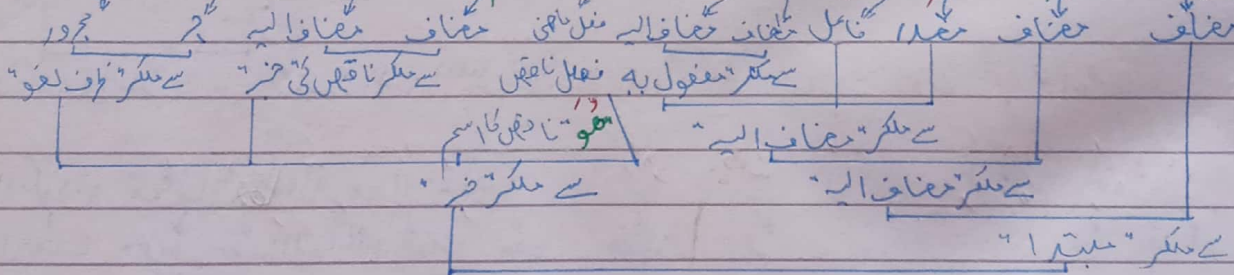 مضاف مضاف مصدر فاعل مضاف مضاف الیہ فعل ناقص مضاف مضاف الیہ جر مجرور
سے ملکر "مفعول بہ فعل ناقص سے ملکر ناقص کی خبر" سے ملکر "ظرف لغو"
سے ملکر "مضاف الیہ" "ھُوَ" ناقص کا اسم
سے ملکر "مضاف الیہ" سے ملکر "خبر"
سے ملکر "مبتدا"